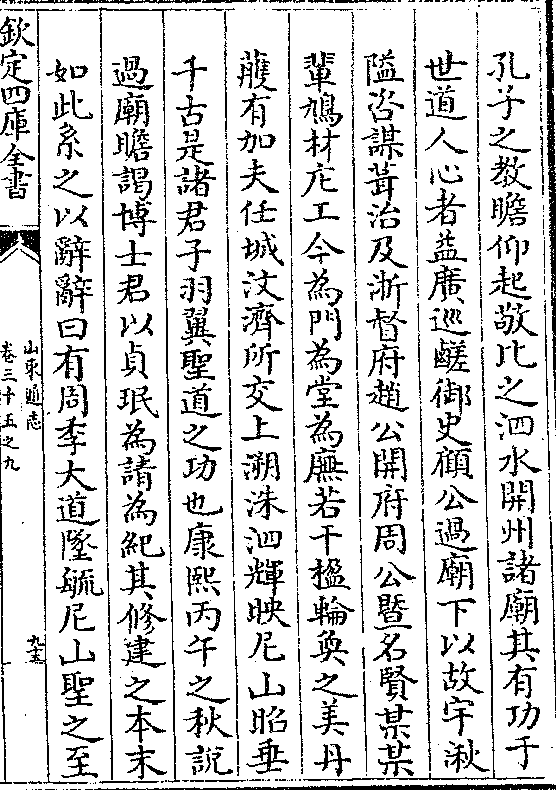 孔子之教瞻仰起敬比之泗水開州諸廟其有功于
世道人心者益廣巡鹺御史顧公過廟下以故宇湫
隘咨謀葺治及浙督府趙公開府周公暨名賢某某
輩鳩材庀工今為門為堂為廡若干楹輪奐之美丹
雘有加夫任城汶濟所交上溯洙泗輝映尼山昭垂
千古是諸君子羽翼聖道之功也康熙丙午之秋說
過廟瞻謁博士君以貞珉為請為紀其修建之本末
如此系之以辭辭曰有周季大道墜毓尼山聖之至
欽定四庫全書
山東通志
卷三十五之九
九十五